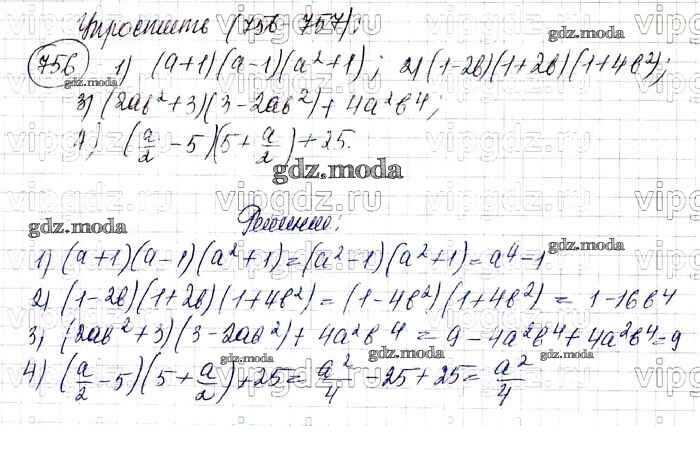 Упростить (756 757):
756 1) (a+1)(a-1)(a²+1); 2) (1-2b)(1+2b)(1+4b²);
3) (2ab²+3)(3-2ab²)+4a²b⁴;
4) (a/2 - 5)(5 + a/2)+25.
gdz.moda
Решение:
1) (a+1)(a-1)(a²+1)=(a²-1)(a²+1)=a⁴-1
2) (1-2b)(1+2b)(1+4b²)=(1-4b²)(1+4b²) = 1-16b⁴
3) (2ab²+3)(3-2ab²)+4a²b⁴ = 9-4a²b⁴+4a²b⁴=9
4) (a/2 - 5)(5 + a/2)+25= a²/4 - 25+25= a²/4